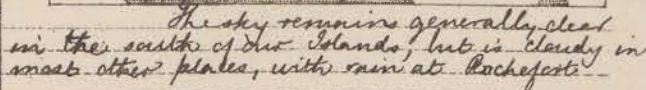 The sky remains generally clear
in the south of our Islands, but is cloudy in
most other places, with rain at Rochefort